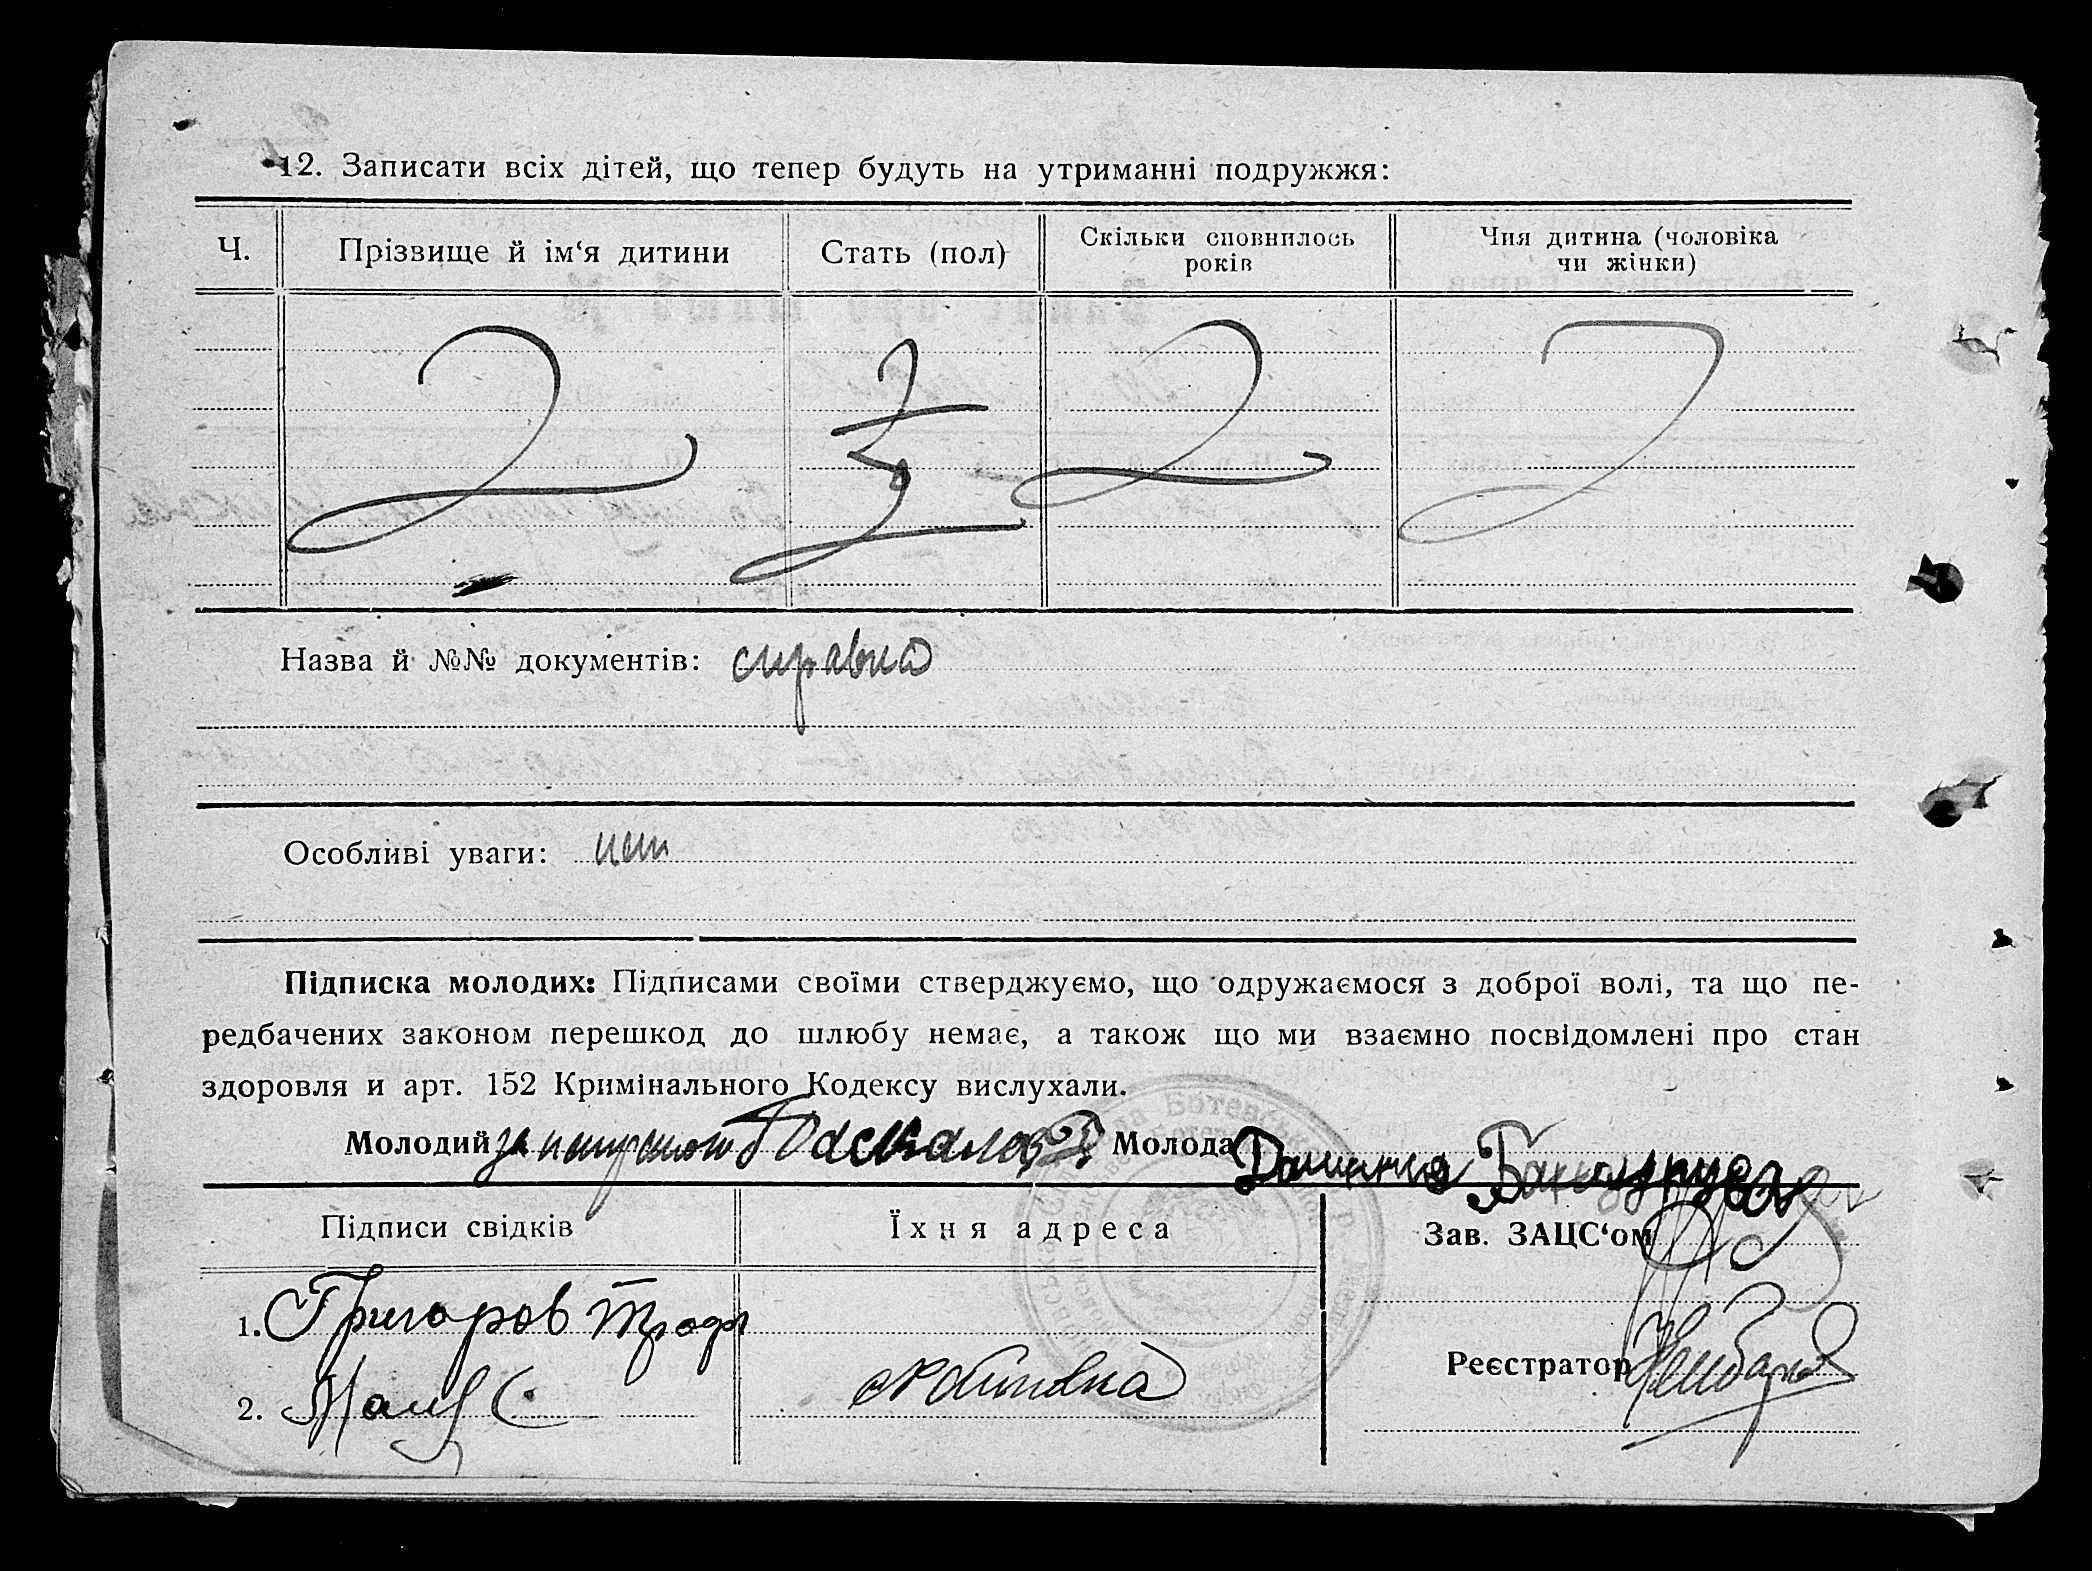 12. Записати всіх дітей, що тепер будуть на утриманні подружжя:
Ч. Прізвище й ім‘я дитини Стать (пол) Скільки сповнилось років Чия дитина (чоловіка чи жінки)
Назва й №№ документів: справка
Особливі уваги: нет
Підписка молодих: Підписами своїми стверджуємо, що одружаємося з доброї волі, та що пе-
редбачених законом перешкод до шлюбу немає, а також що ми взаємно посвідомлені про стан
здоровля и арт. 152 Кримінального Кодексу вислухали.
Молодий за Паскалов Молода
Підписи свідків Їхня адреса Зав. ЗАЦС‘ом
1. Григоров Троф
Реєстратор
2.